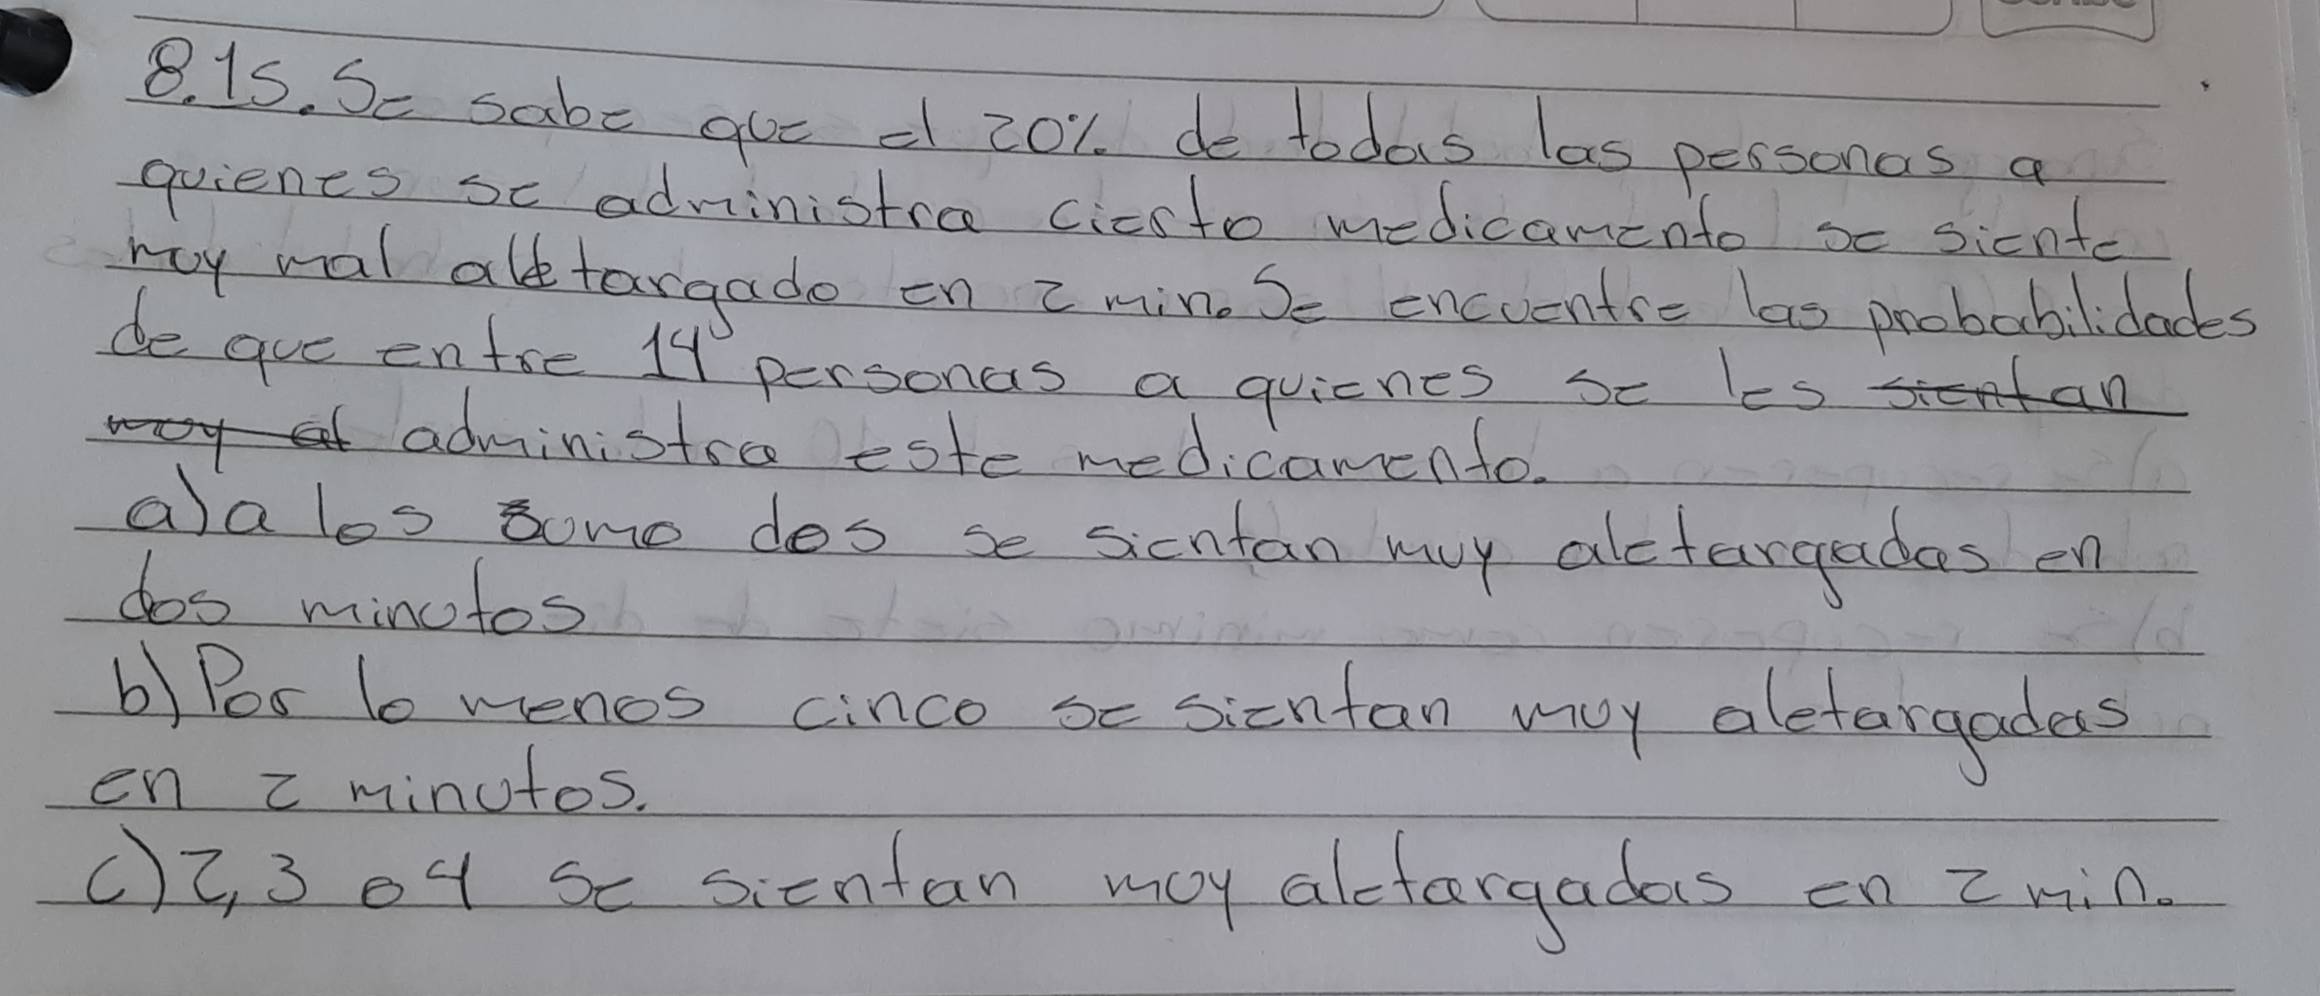 8.15. Se sabe que el 20% de todas las personas a
quienes se administra cierto medicamento se siente
muy mal aletargado en 2 min. Se encuentre las probabilidades
de que entre 14 personas a quienes se les sientan
muy al administra este medicamento.
a) a los sumo dos se sientan muy aletargadas en
dos minutos
b) Por lo menos cinco se sientan muy aletargadas
en 2 minutos.
c) 2, 3 o 4 se sientan muy aletargadas en 2 min.